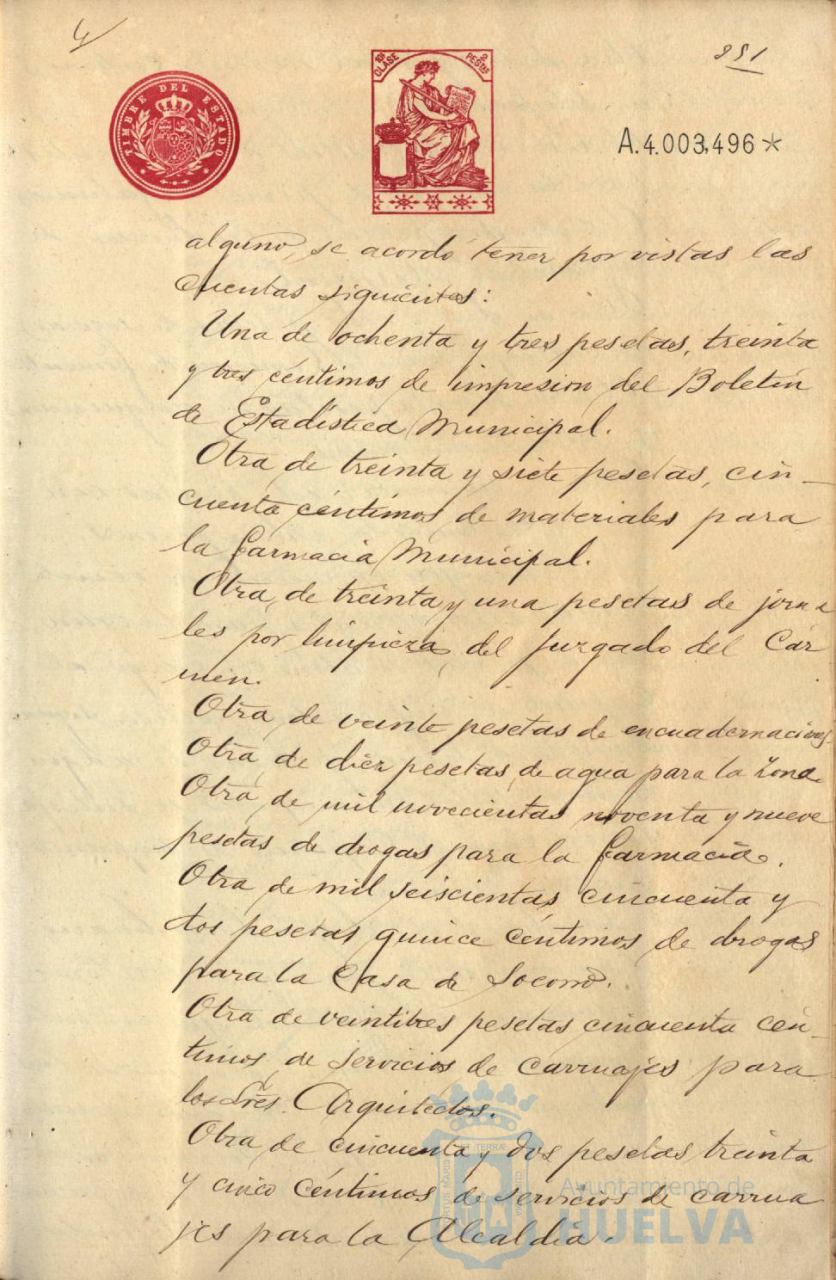 4
851
TIMBRE DEL ESTADO
10ª CLASE 2 PESTAS
A.4.003,496*
alguno, se acordó tener por vistas las
cuentas siguientes:
Una de ochenta y tres pesetas, treinta
y tres céntimos de impresion del Boletín
de Estadística Municipal.
Otra de treinta y siete pesetas, cin-
cuenta céntimos de materiales para
la farmacia Municipal.
Otra, de treinta y una pesetas de jorna
les por limpieza del Juzgado del Car
men.
Otra, de veinte pesetas de encuadernaciones.
Otra de diez pesetas de agua para la Zona
Otra de mil novecientas noventa y nueve
pesetas de drogas para la farmacia.
Otra de mil seiscientas cincuenta y
dos pesetas quince céntimos de drogas
para la Casa de Socorro.
Otra de veintitres pesetas cincuenta cén-
timos de servicios de carruajes para
los Sres. Arquitectos.
Otra de cincuenta y dos pesetas treinta
y cinco céntimos de servicios de carrua
jes para la Alcaldía.
Ayuntamiento de
HUELVA